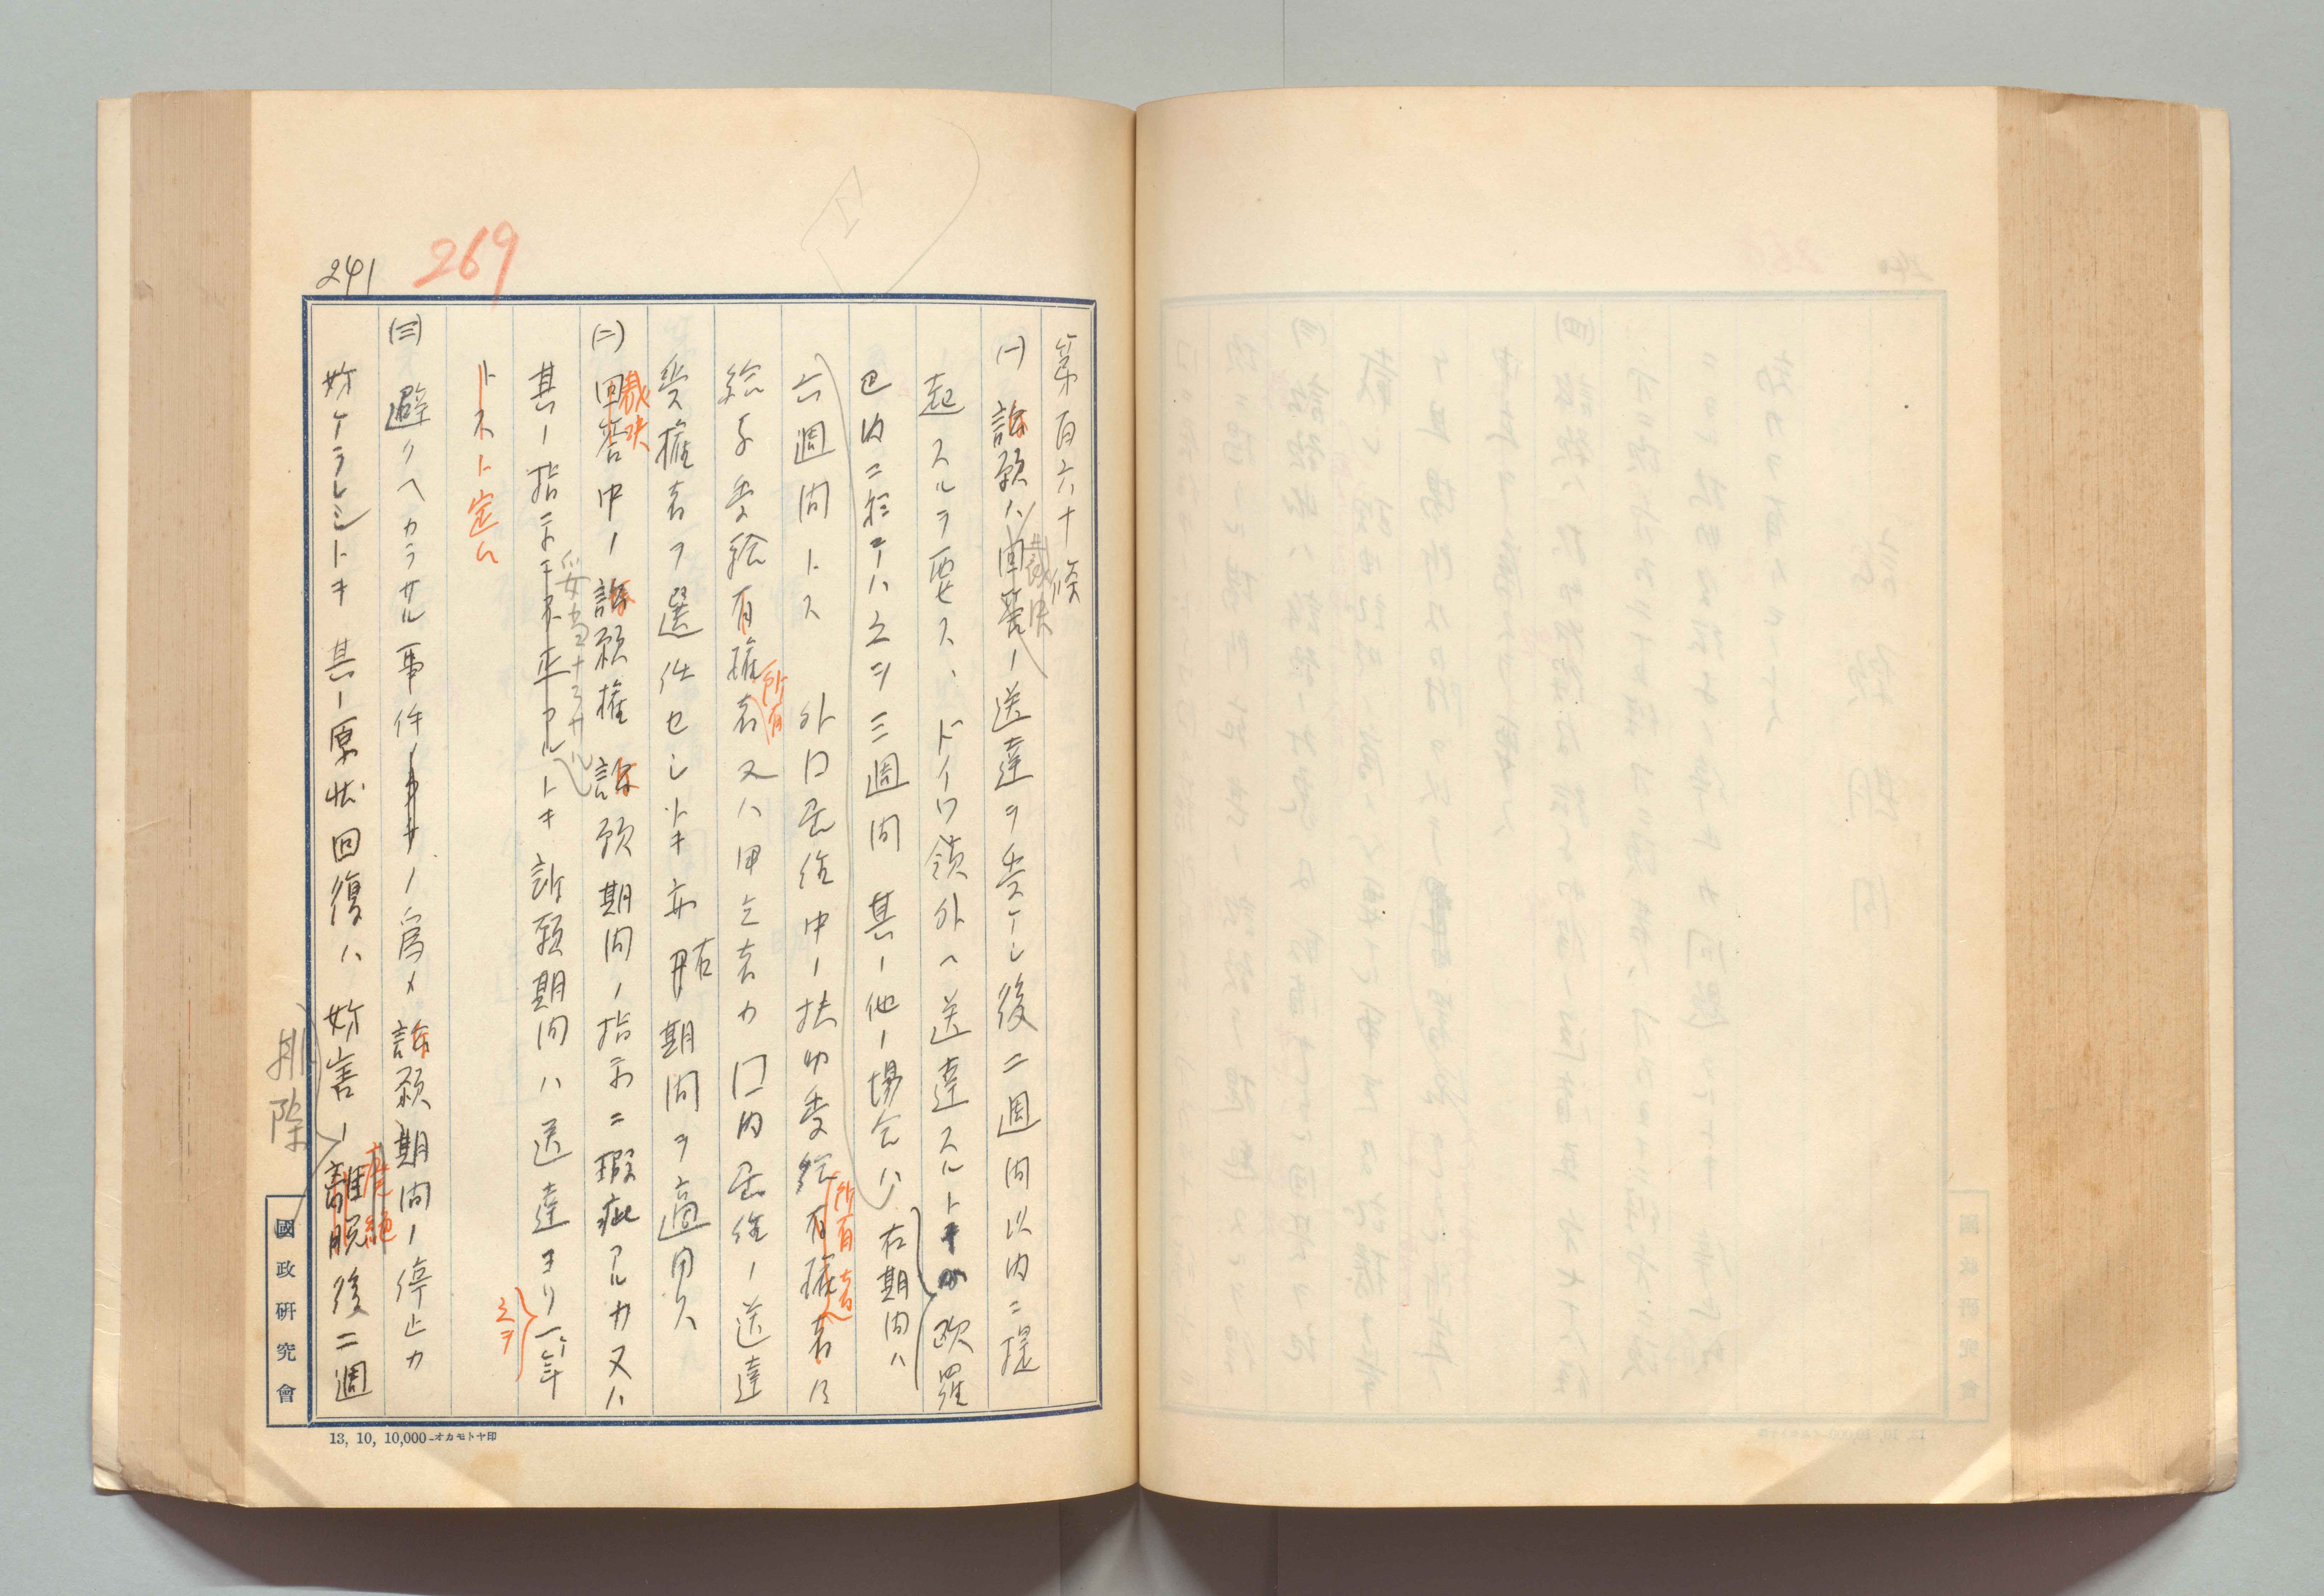 269
241
第百六十條
(一) 訴願ハ回答ノ送達ヲ受ケシ後二週間以内ニ提
裁決
起スルヲ要ス、ドイツ領外ヘ送達スルトキ欧羅
巴内ニ於テハ之ヲ三週間其ノ他ノ場合ハ
右期間ハ
六週間トス 外口居住中ノ扶助受給有権者ニ
所有者
給シ受給有権者又ハ申立者カ口内居住ノ送達
所有
受権者ヲ選任セシトキ亦右期間ヲ適用ス
(二) 回答中ノ訴願権訴願期間ノ指示ニ瑕疵アルカ又ハ
裁決
其ノ指示ニ不平アルトキ訴願期間ハ送達ヨリ一年
妥当ナラサル
トス ト定ム
之ヲ
(三) 避クヘカラサル事件ノ為メ訴願期間ノ停止カ
妨ケラレシトキ其ノ原状回復ハ妨害ノ離脱後二週
杜絶
排除
國政研究會
13, 10, 10,000-オカモトヤ印